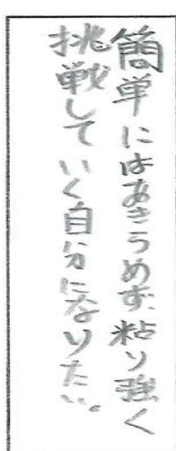 簡単にはあきらめず、粘り強く
挑戦していく自分になりたい。